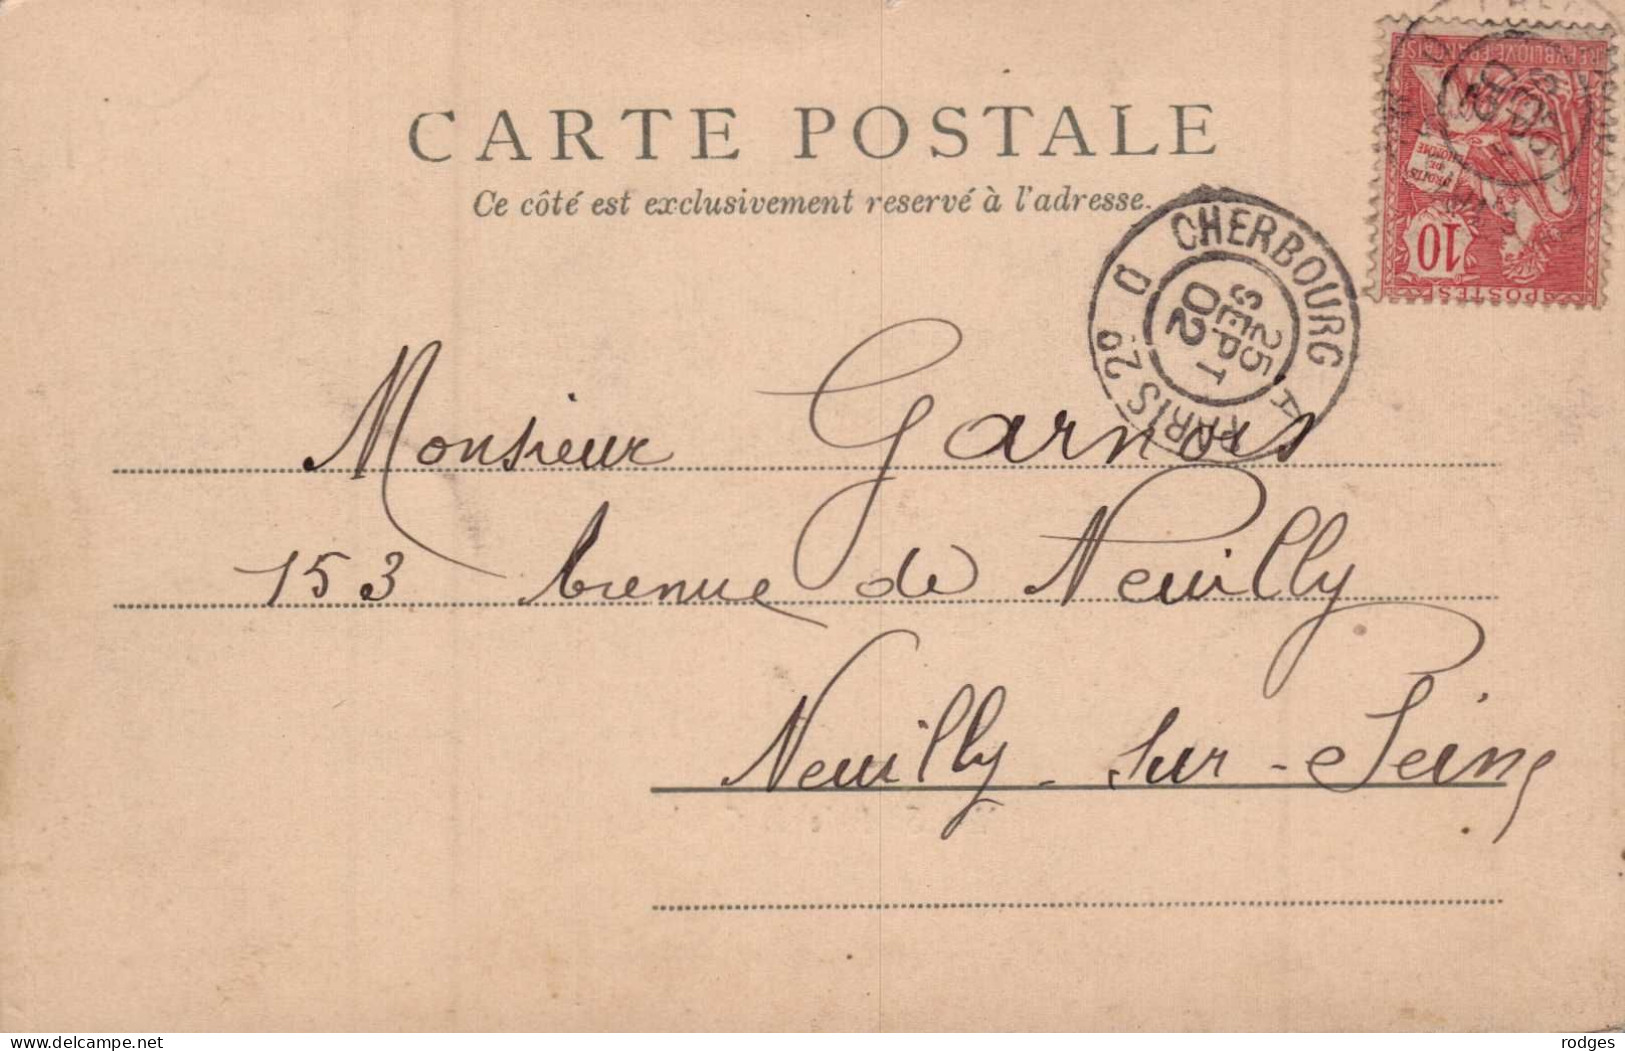 CARTE POSTALE
Ce côté est exclusivement reservé à l'adresse.
RÉPUBLIQUE FRANÇAISE
DROITS
DE
L'HOMME
10
POSTES
CHERBOURG A PARIS 2°
25
SEPT
02
Monsieur Garnois
153 Avenue de Neuilly
Neuilly-sur-Seine
delcampe.net
rodges